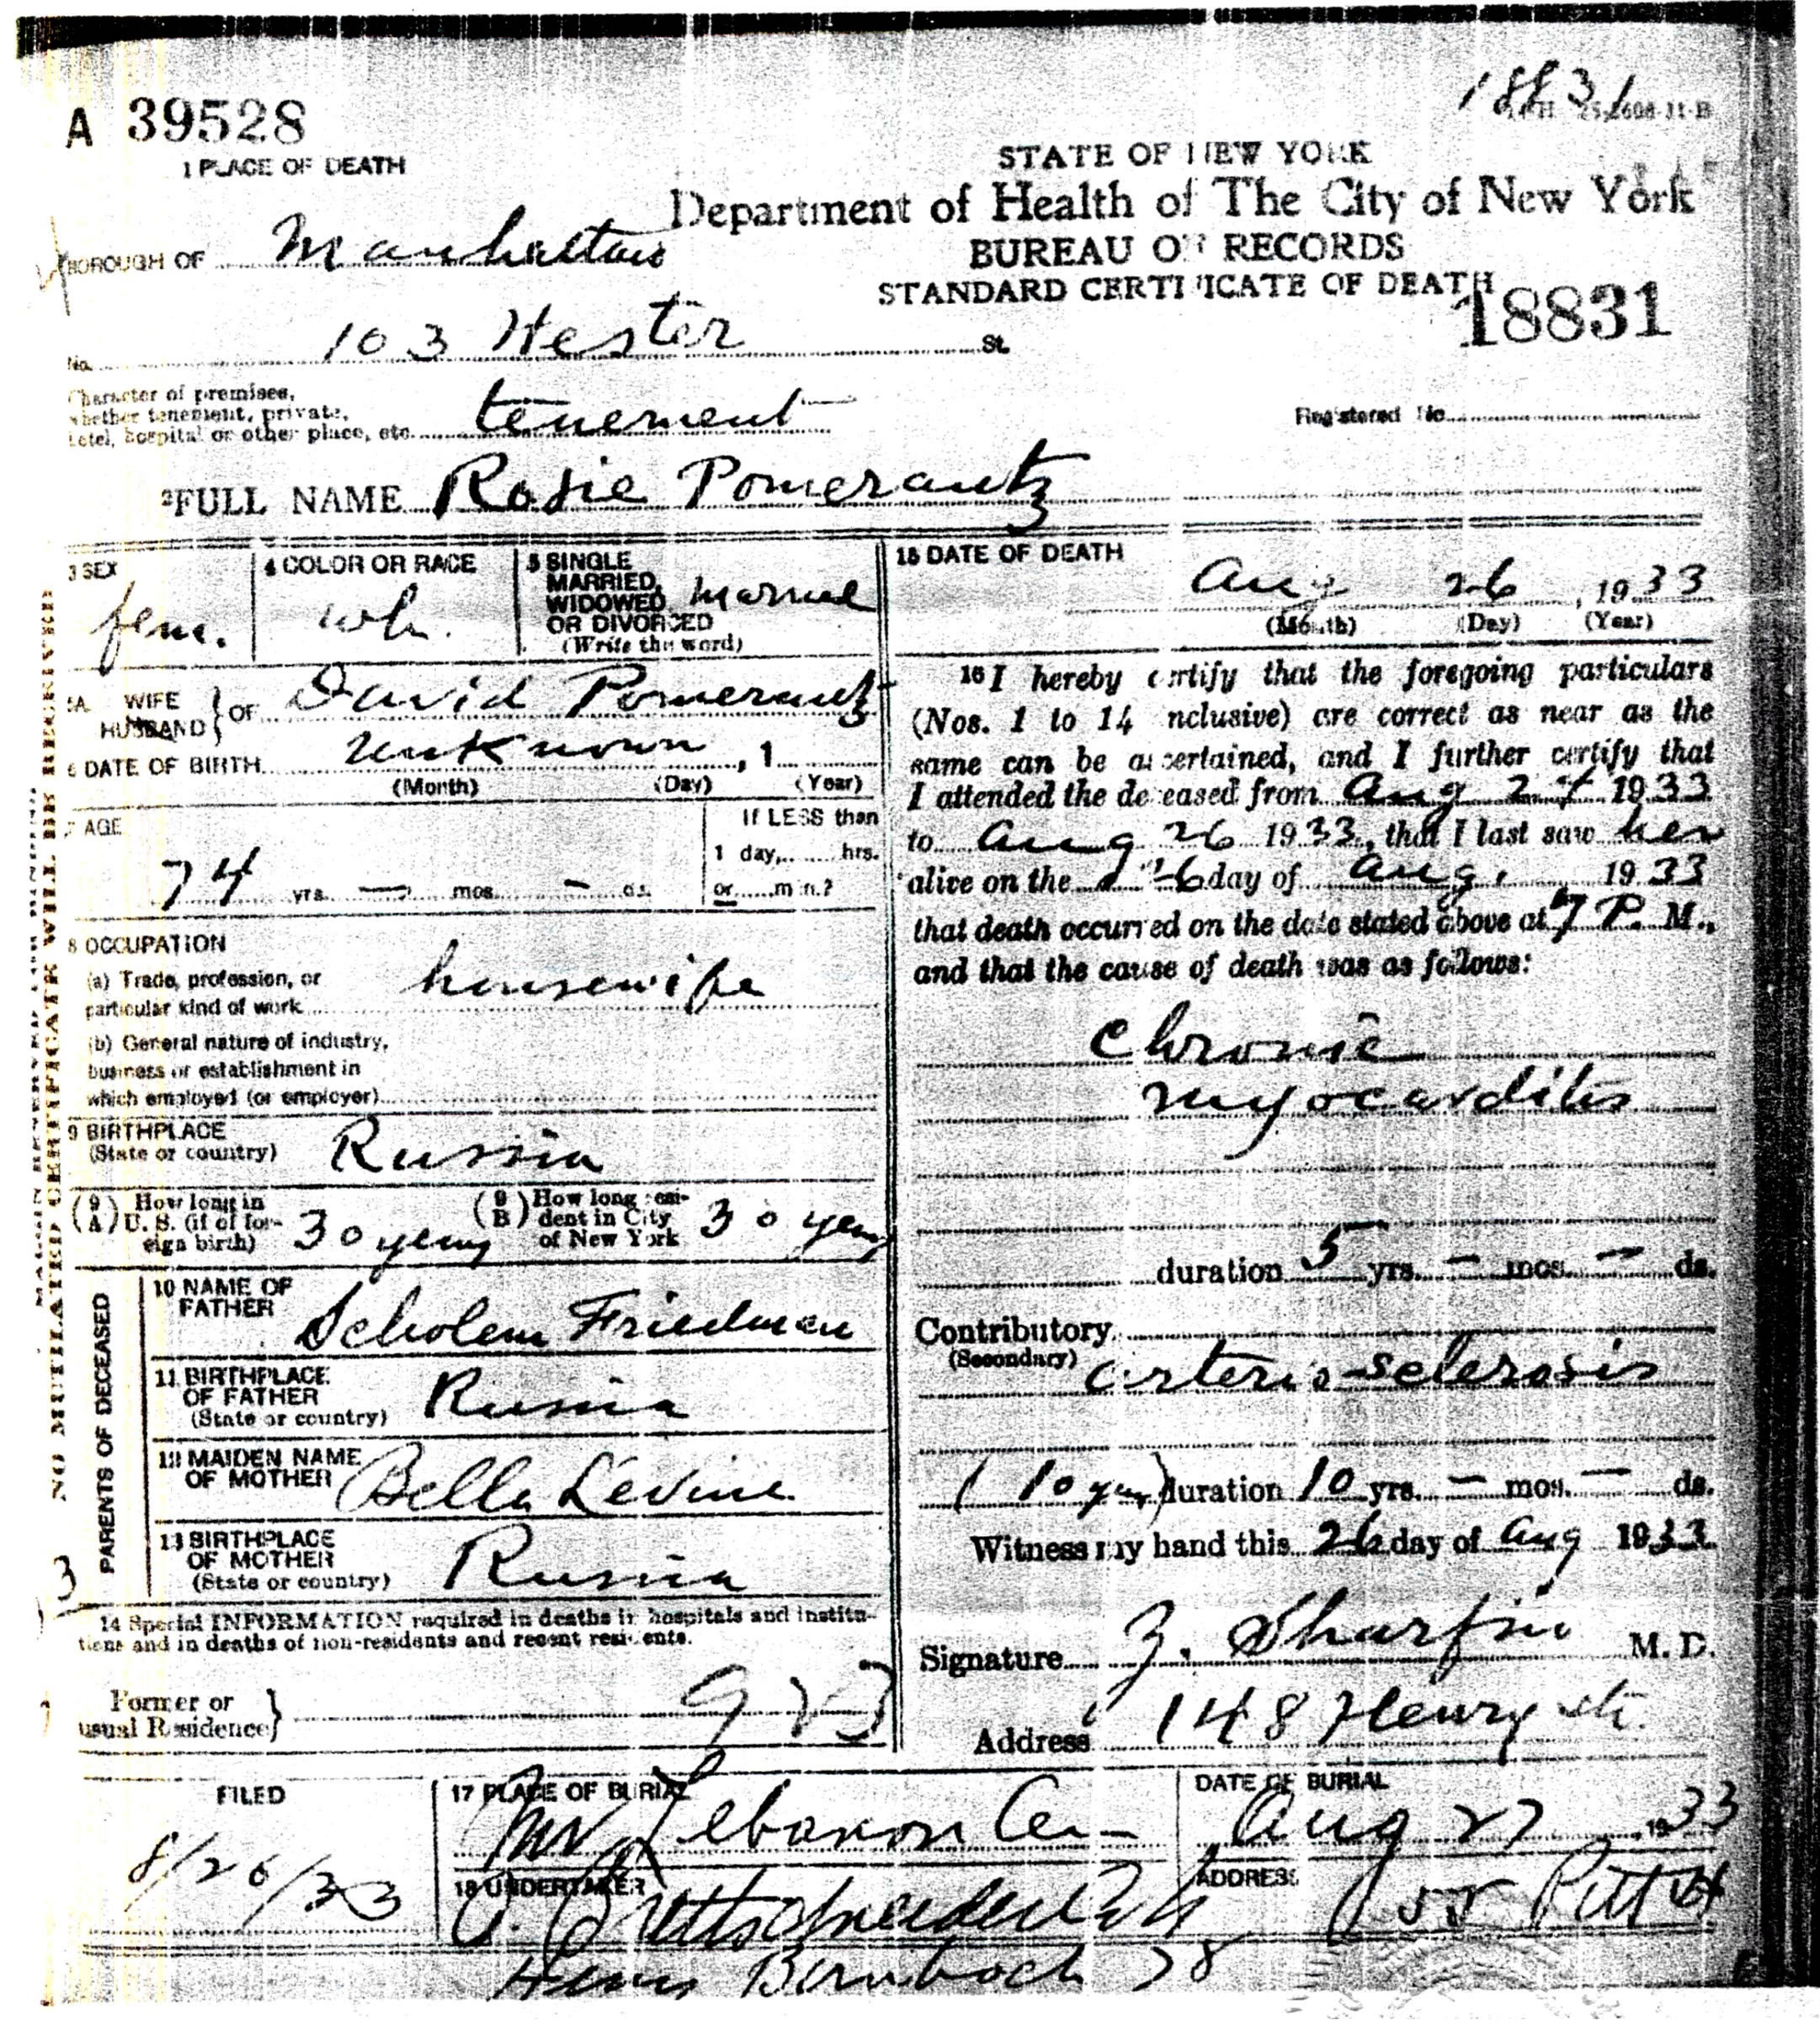 18831
A 39528
1 PLACE OF DEATH
STATE OF NEW YORK
Department of Health of The City of New York
BUREAU OF RECORDS
STANDARD CERTIFICATE OF DEATH
18831
BOROUGH OF Manhattan
No. 103 Hester St.
Character of premises,
whether tenement, private,
hotel, hospital or other place, etc. tenement
Registered No.
2 FULL NAME Rosie Pomerantz
3 SEX
fem.
4 COLOR OR RACE
wh.
5 SINGLE
MARRIED,
WIDOWED
OR DIVORCED
(Write the word)
Married
5A WIFE
HUSBAND } OF David Pomerantz
6 DATE OF BIRTH unknown, 1
(Month) (Day) (Year)
7 AGE
74 yrs. — mos. — ds.
If LESS than
1 day, hrs.
or min.?
8 OCCUPATION
(a) Trade, profession, or
particular kind of work housewife
(b) General nature of industry,
business or establishment in
which employed (or employer)
9 BIRTHPLACE
(State or country) Russia
(9 A) How long in
U. S. (if of for-
eign birth) 30 years
(9 B) How long resi-
dent in City
of New York 30 years
PARENTS OF DECEASED
10 NAME OF
FATHER
Scholem Friedman
11 BIRTHPLACE
OF FATHER
(State or country) Russia
12 MAIDEN NAME
OF MOTHER Bella Levine
13 BIRTHPLACE
OF MOTHER
(State or country) Russia
14 Special INFORMATION required in deaths in hospitals and institu-
tions and in deaths of non-residents and recent residents.
Former or
usual Residence }
15 DATE OF DEATH
Aug 26, 1933
(Month) (Day) (Year)
16 I hereby certify that the foregoing particulars
(Nos. 1 to 14 inclusive) are correct as near as the
same can be ascertained, and I further certify that
I attended the deceased from Aug 24 1933
to Aug 26 1933, that I last saw her
alive on the 26 day of Aug. 1933
that death occurred on the date stated above at 7 P. M.,
and that the cause of death was as follows:
Chronic
myocarditis
duration 5 yrs. — mos. — ds.
Contributory
(Secondary) arterio-sclerosis
(10 years) duration 10 yrs. — mos. — ds.
Witness my hand this 26 day of Aug 1933
Signature Z. Sharfin M. D.
Address 148 Henry st.
FILED
8/26/33
17 PLACE OF BURIAL
Mt Lebanon Cem
DATE OF BURIAL
Aug 27, 1933
18 UNDERTAKER
ADDRESS
155 Pitt St
Bernbach 78
NO MUTILATED CERTIFICATE WILL BE RECEIVED